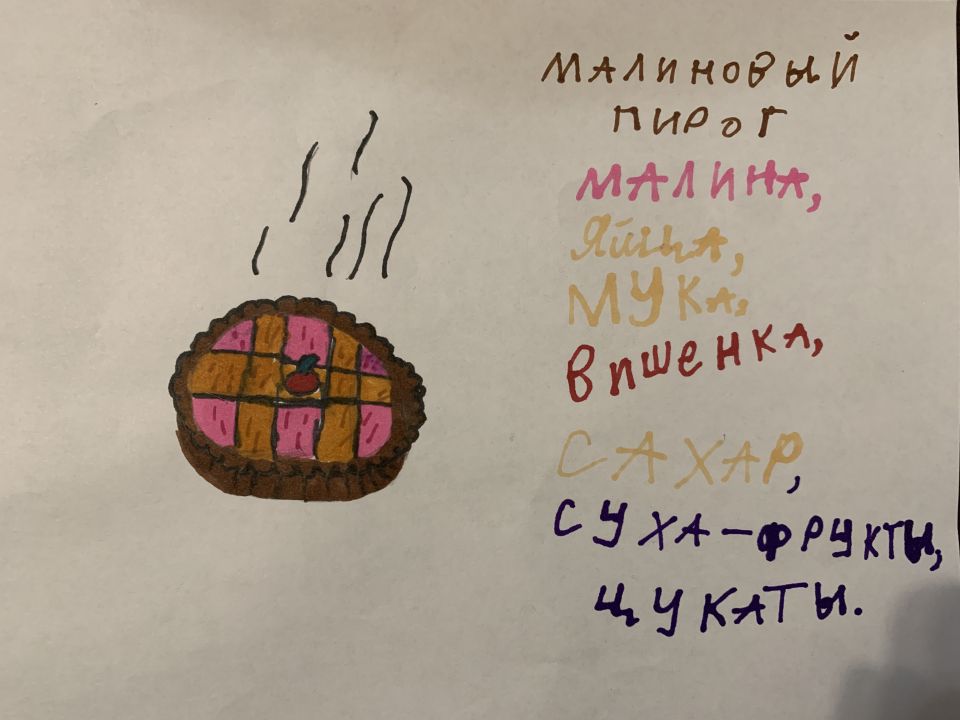 МАЛИНОВЫЙ
ПИРОГ
МАЛИНА,
Яйца,
МУКА,
ВИШЕНКА,
САХАР,
СУХА-ФРУКТЫ,
ЦУКАТЫ.